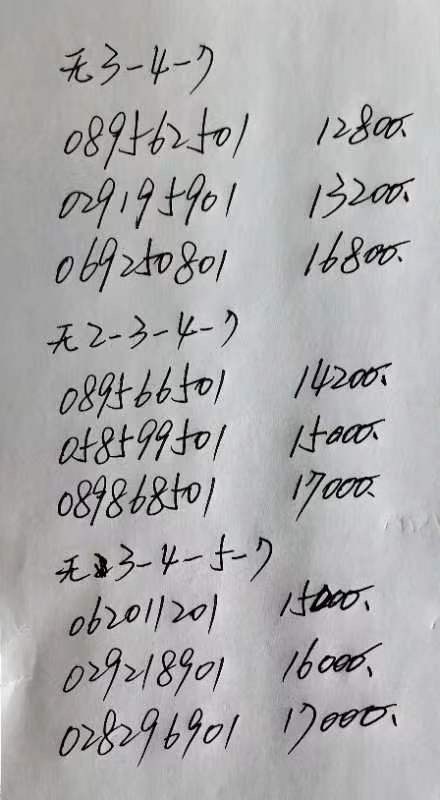 无3-4-7
089562501 12800.
029195901 13200.
069250801 16800.
无2-3-4-7
089566501 14200.
058599501 15000.
089868501 17000.
无3-4-5-7
062011201 15000.
029218901 16000.
028296901 17000.